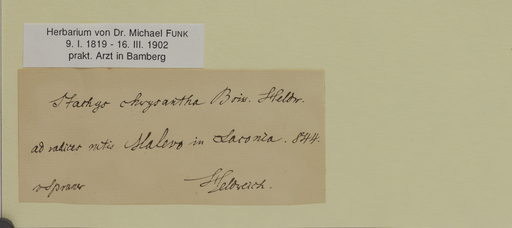 Herbarium von Dr. Michael FUNK
9. I. 1819 - 16. III. 1902
prakt. Arzt in Bamberg
Stachys chrysantha Boiss. Heldr.
ad radices mtis Malevo in Laconia. 844.
Heldreich.